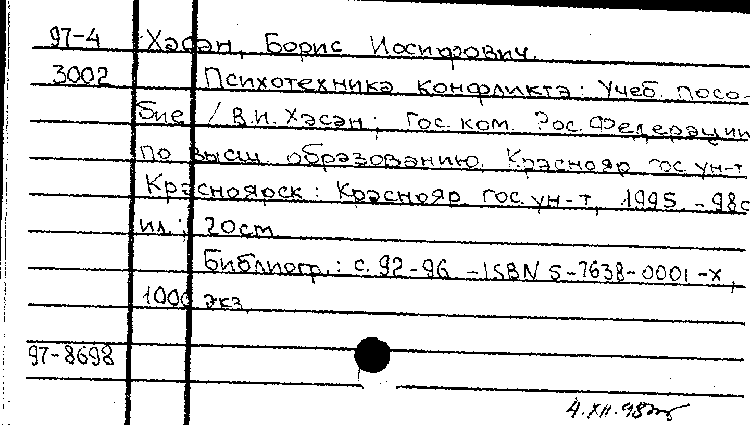 97-4 Хэсэн, Борис Иосифович.
3002 Психотехникэ конфликтэ: Учеб. посо-
бие / В.И. Хэсэн; Гос. ком. Рос. Федерэции
по высш. обрэзовэнию. Крэснояр. гос. ун-т.
Крэсноярск: Крэснояр. гос. ун-т, 1995. - 98с
ил.; 20см
Библиогр.: с. 92-96. - ISBN 5-7638-0001-X,
1000 экз.
97-8698
4.XII.98